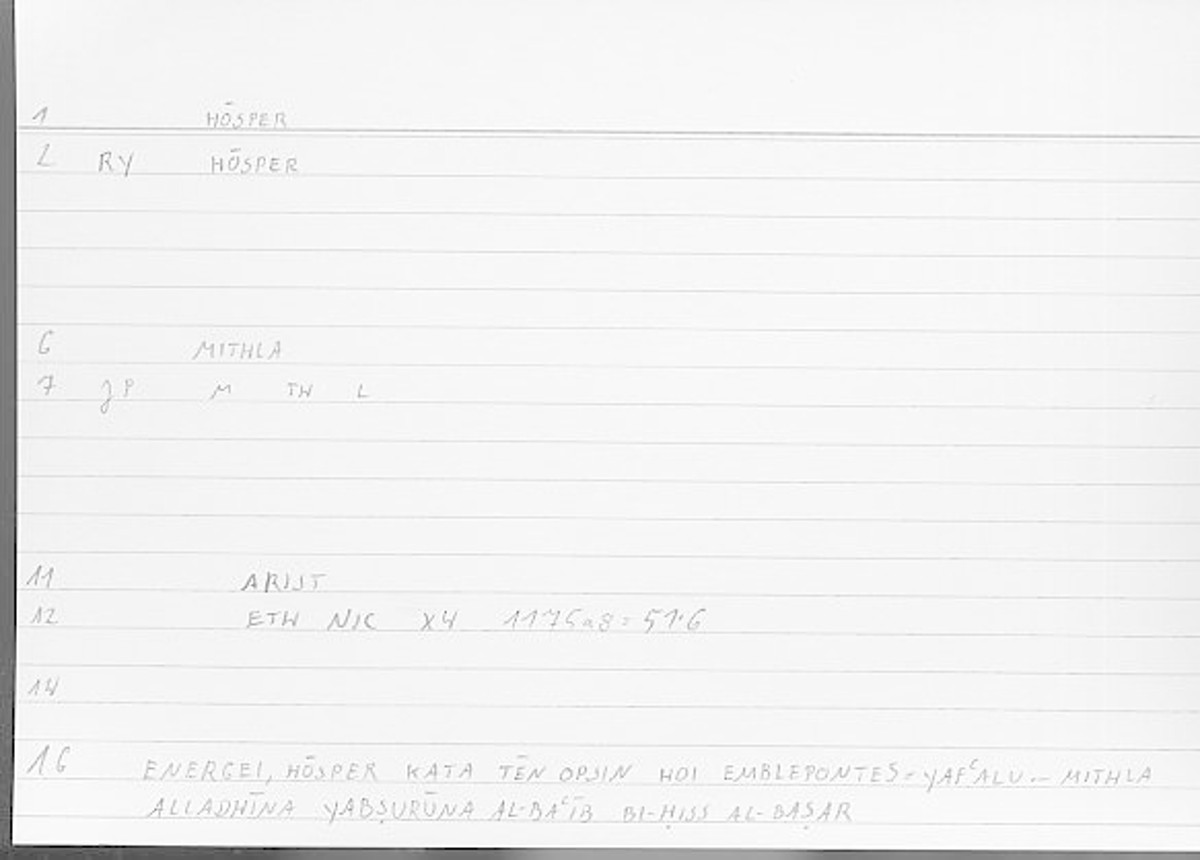 1 HŌSPER
2 RY HŌSPER
6 MITHLA
7 JP M TH L
11 ARIST
12 ETH NIC X4 1175a8 = 51·6
14
16 ENERGEI, HŌSPER KATA TĒN OPSIN HOI EMBLEPONTES = YAFʿALU — MITHLA
ALLADHĪNA YABṢURŪNA BI-ḤISS AL-BAṢAR